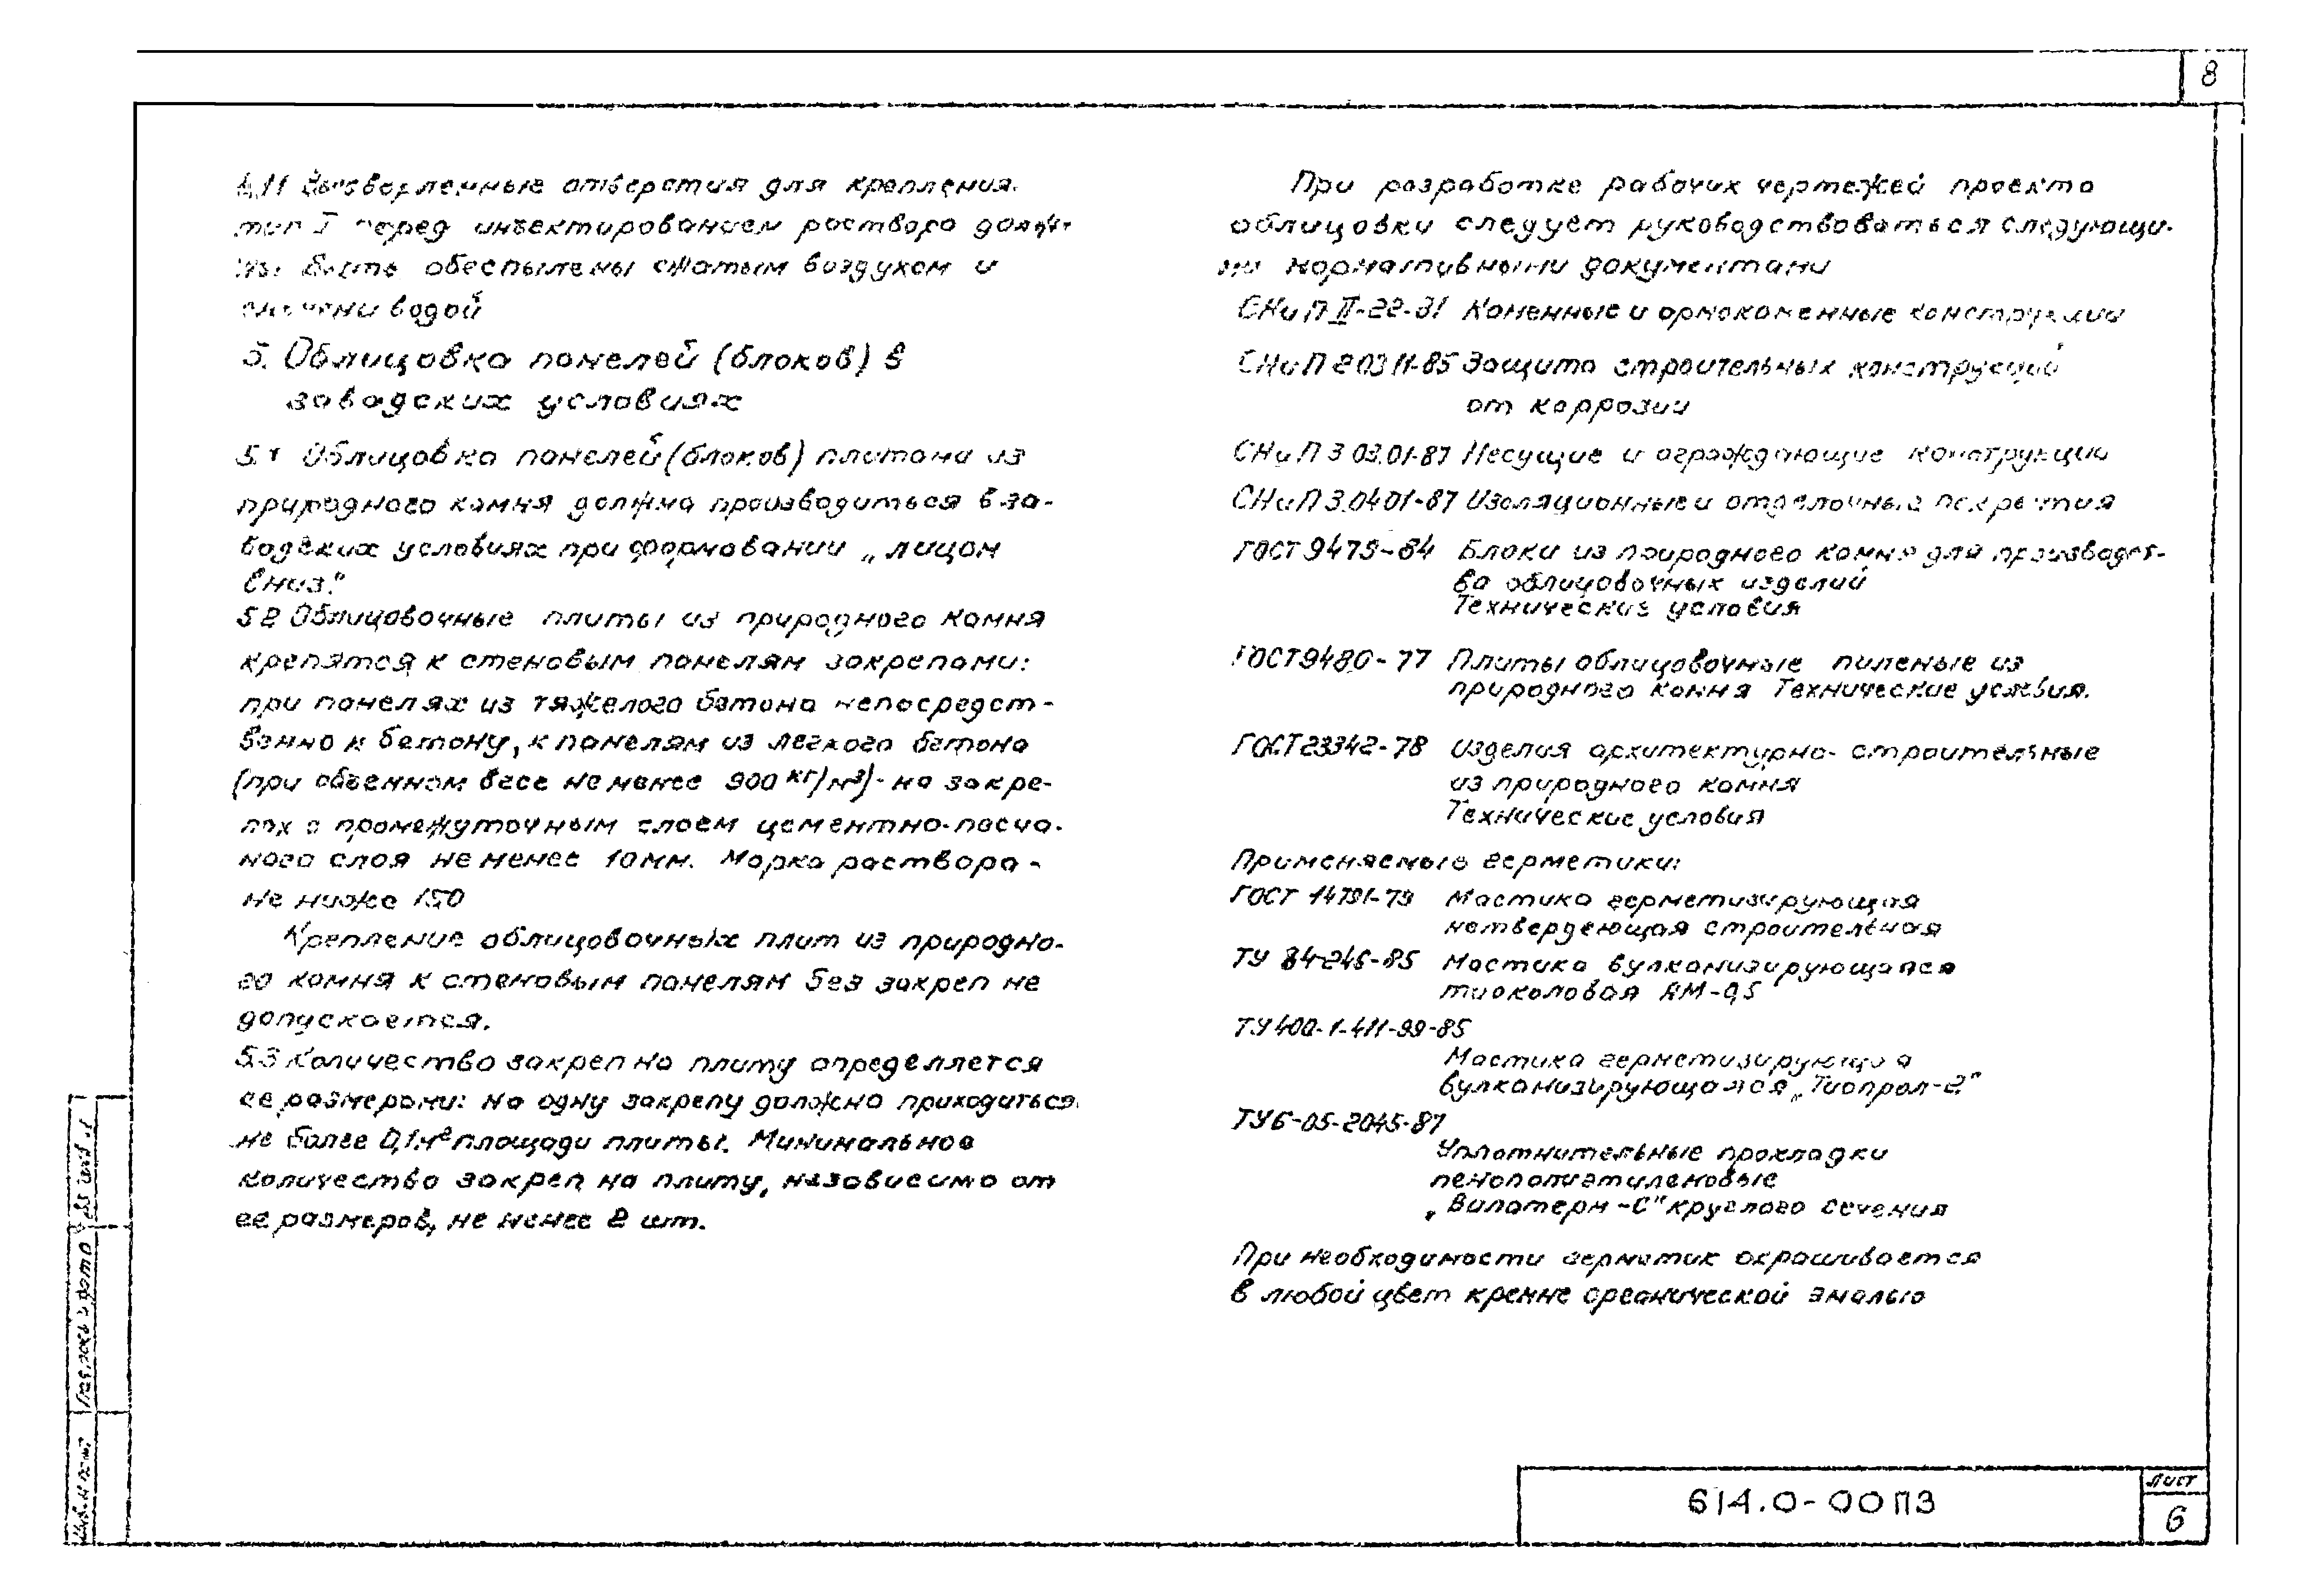 8
4.11 Высверленные отверстия для крепления
тип I перед инъектированием раствора долж-
ны быть обеспылены сжатым воздухом и
смочены водой
5. Облицовка панелей (блоков) в
заводских условиях
5.1 Облицовка панелей (блоков) плитами из
природного камня должна производиться в за-
водских условиях при формовании „лицом
вниз."
5.2 Облицовочные плиты из природного камня
крепятся к стеновым панелям закрепами:
при панелях из тяжелого бетона непосредст-
венно к бетону, к панелям из легкого бетона
(при объемном весе не менее 900 кг/м³)- на закре-
пах с промежуточным слоем цементно-песча-
ного слоя не менее 10мм. Марка раствора -
не ниже 150
Крепление облицовочных плит из природно-
го камня к стеновым панелям без закреп не
допускается.
5.3 Количество закреп на плиту определяется
ее размерами: на одну закрепу должно приходиться
не более 0,1м² площади плиты. Минимальное
количество закреп на плиту, независимо от
ее размеров, не менее 2 шт.
При разработке рабочих чертежей проекта
облицовки следует руководствоваться следующи-
ми нормативными документами
СНиП II-22-81 Каменные и армокаменные конструкции
СНиП 2.03.11-85 Защита строительных конструкций
от коррозии
СНиП 3.03.01-87 Несущие и ограждающие конструкции
СНиП 3.04.01-87 Изоляционные и отделочные покрытия
ГОСТ 9479-84 Блоки из природного камня для производст-
ва облицовочных изделий
Технические условия
ГОСТ 9480-77 Плиты облицовочные пиленые из
природного камня Технические условия.
ГОСТ 23342-78 Изделия архитектурно-строительные
из природного камня
Технические условия
Применяемые герметики:
ГОСТ 14791-79 Мастика герметизирующая
нетвердеющая строительная
ТУ 84-246-85 Мастика вулканизирующаяся
тиоколовая АМ-0,5
ТУ 400-1-411-99-85
Мастика герметизирующая
вулканизирующаяся „Тиопрол-2"
ТУ6-05-2045-87
Уплотнительные прокладки
пенополиэтиленовые
„Вилатерм-С" круглого сечения
При необходимости герметик окрашивается
в любой цвет кремне органической эмалью
Инв. № подл. Подпись и дата
614.0-00ПЗ
Лист
6